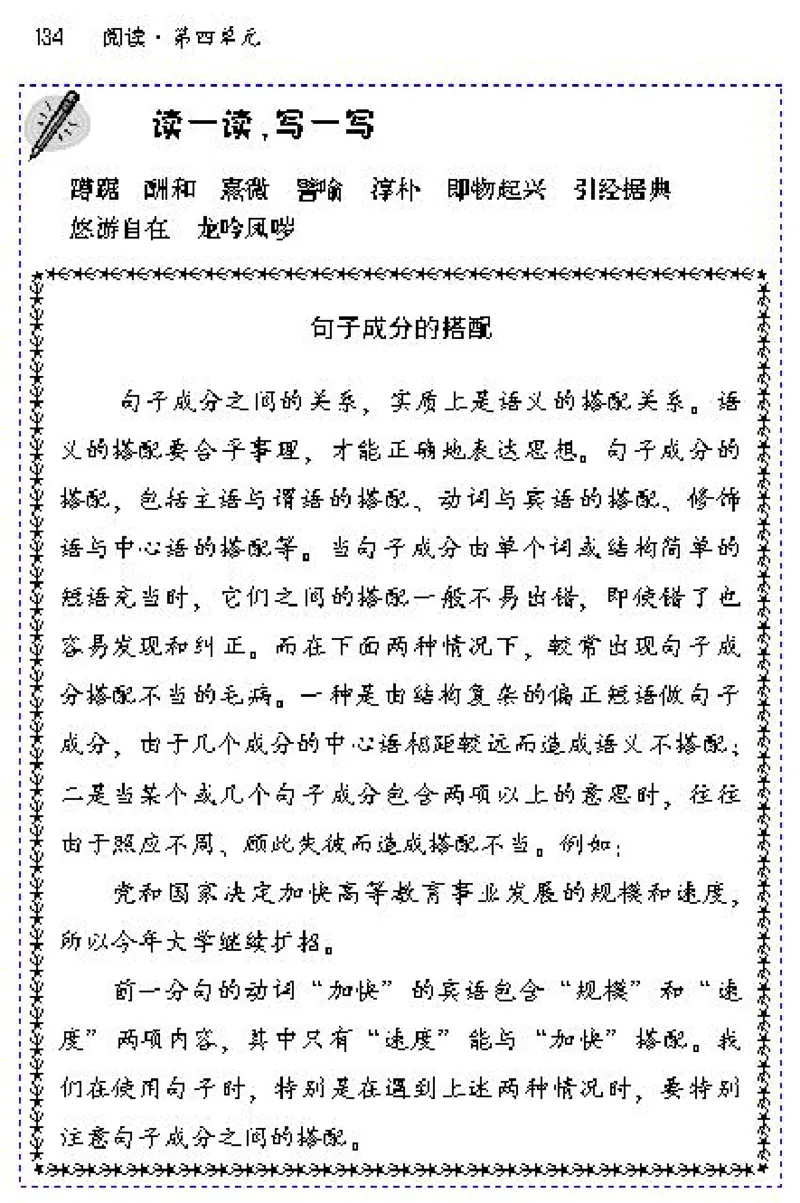 134 阅读·第四单元
读一读,写一写
蹲踞 酬和 熹微 譬喻 淳朴 即物起兴 引经据典
悠游自在 龙吟凤哕
句子成分的搭配
句子成分之间的关系，实质上是语义的搭配关系。语
义的搭配要合乎事理，才能正确地表达思想。句子成分的
搭配，包括主语与谓语的搭配、动词与宾语的搭配、修饰
语与中心语的搭配等。当句子成分由单个词或结构简单的
短语充当时，它们之间的搭配一般不易出错，即使错了也
容易发现和纠正。而在下面两种情况下，较常出现句子成
分搭配不当的毛病。一种是由结构复杂的偏正短语做句子
成分，由于几个成分的中心语相距较远而造成语义不搭配；
二是当某个或几个句子成分包含两项以上的意思时，往往
由于照应不周、顾此失彼而造成搭配不当。例如：
党和国家决定加快高等教育事业发展的规模和速度，
所以今年大学继续扩招。
前一分句的动词“加快”的宾语包含“规模”和“速
度”两项内容，其中只有“速度”能与“加快”搭配。我
们在使用句子时，特别是在遇到上述两种情况时，要特别
注意句子成分之间的搭配。